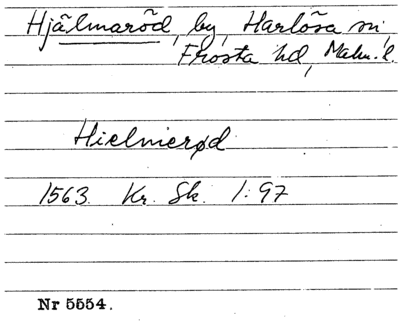 Hjälmaröd, by, Harlösa sn,
Frosta hd, Malm. l.
Hielmerød
1563. Kr. Sk. 1:97
Nr 5554.